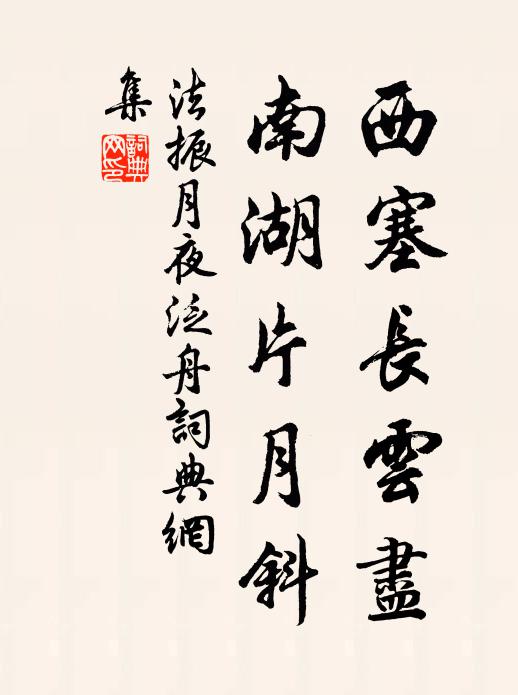 西塞長雲盡
南湖片月斜
法振月夜泛舟詞典網
集
詞典网印